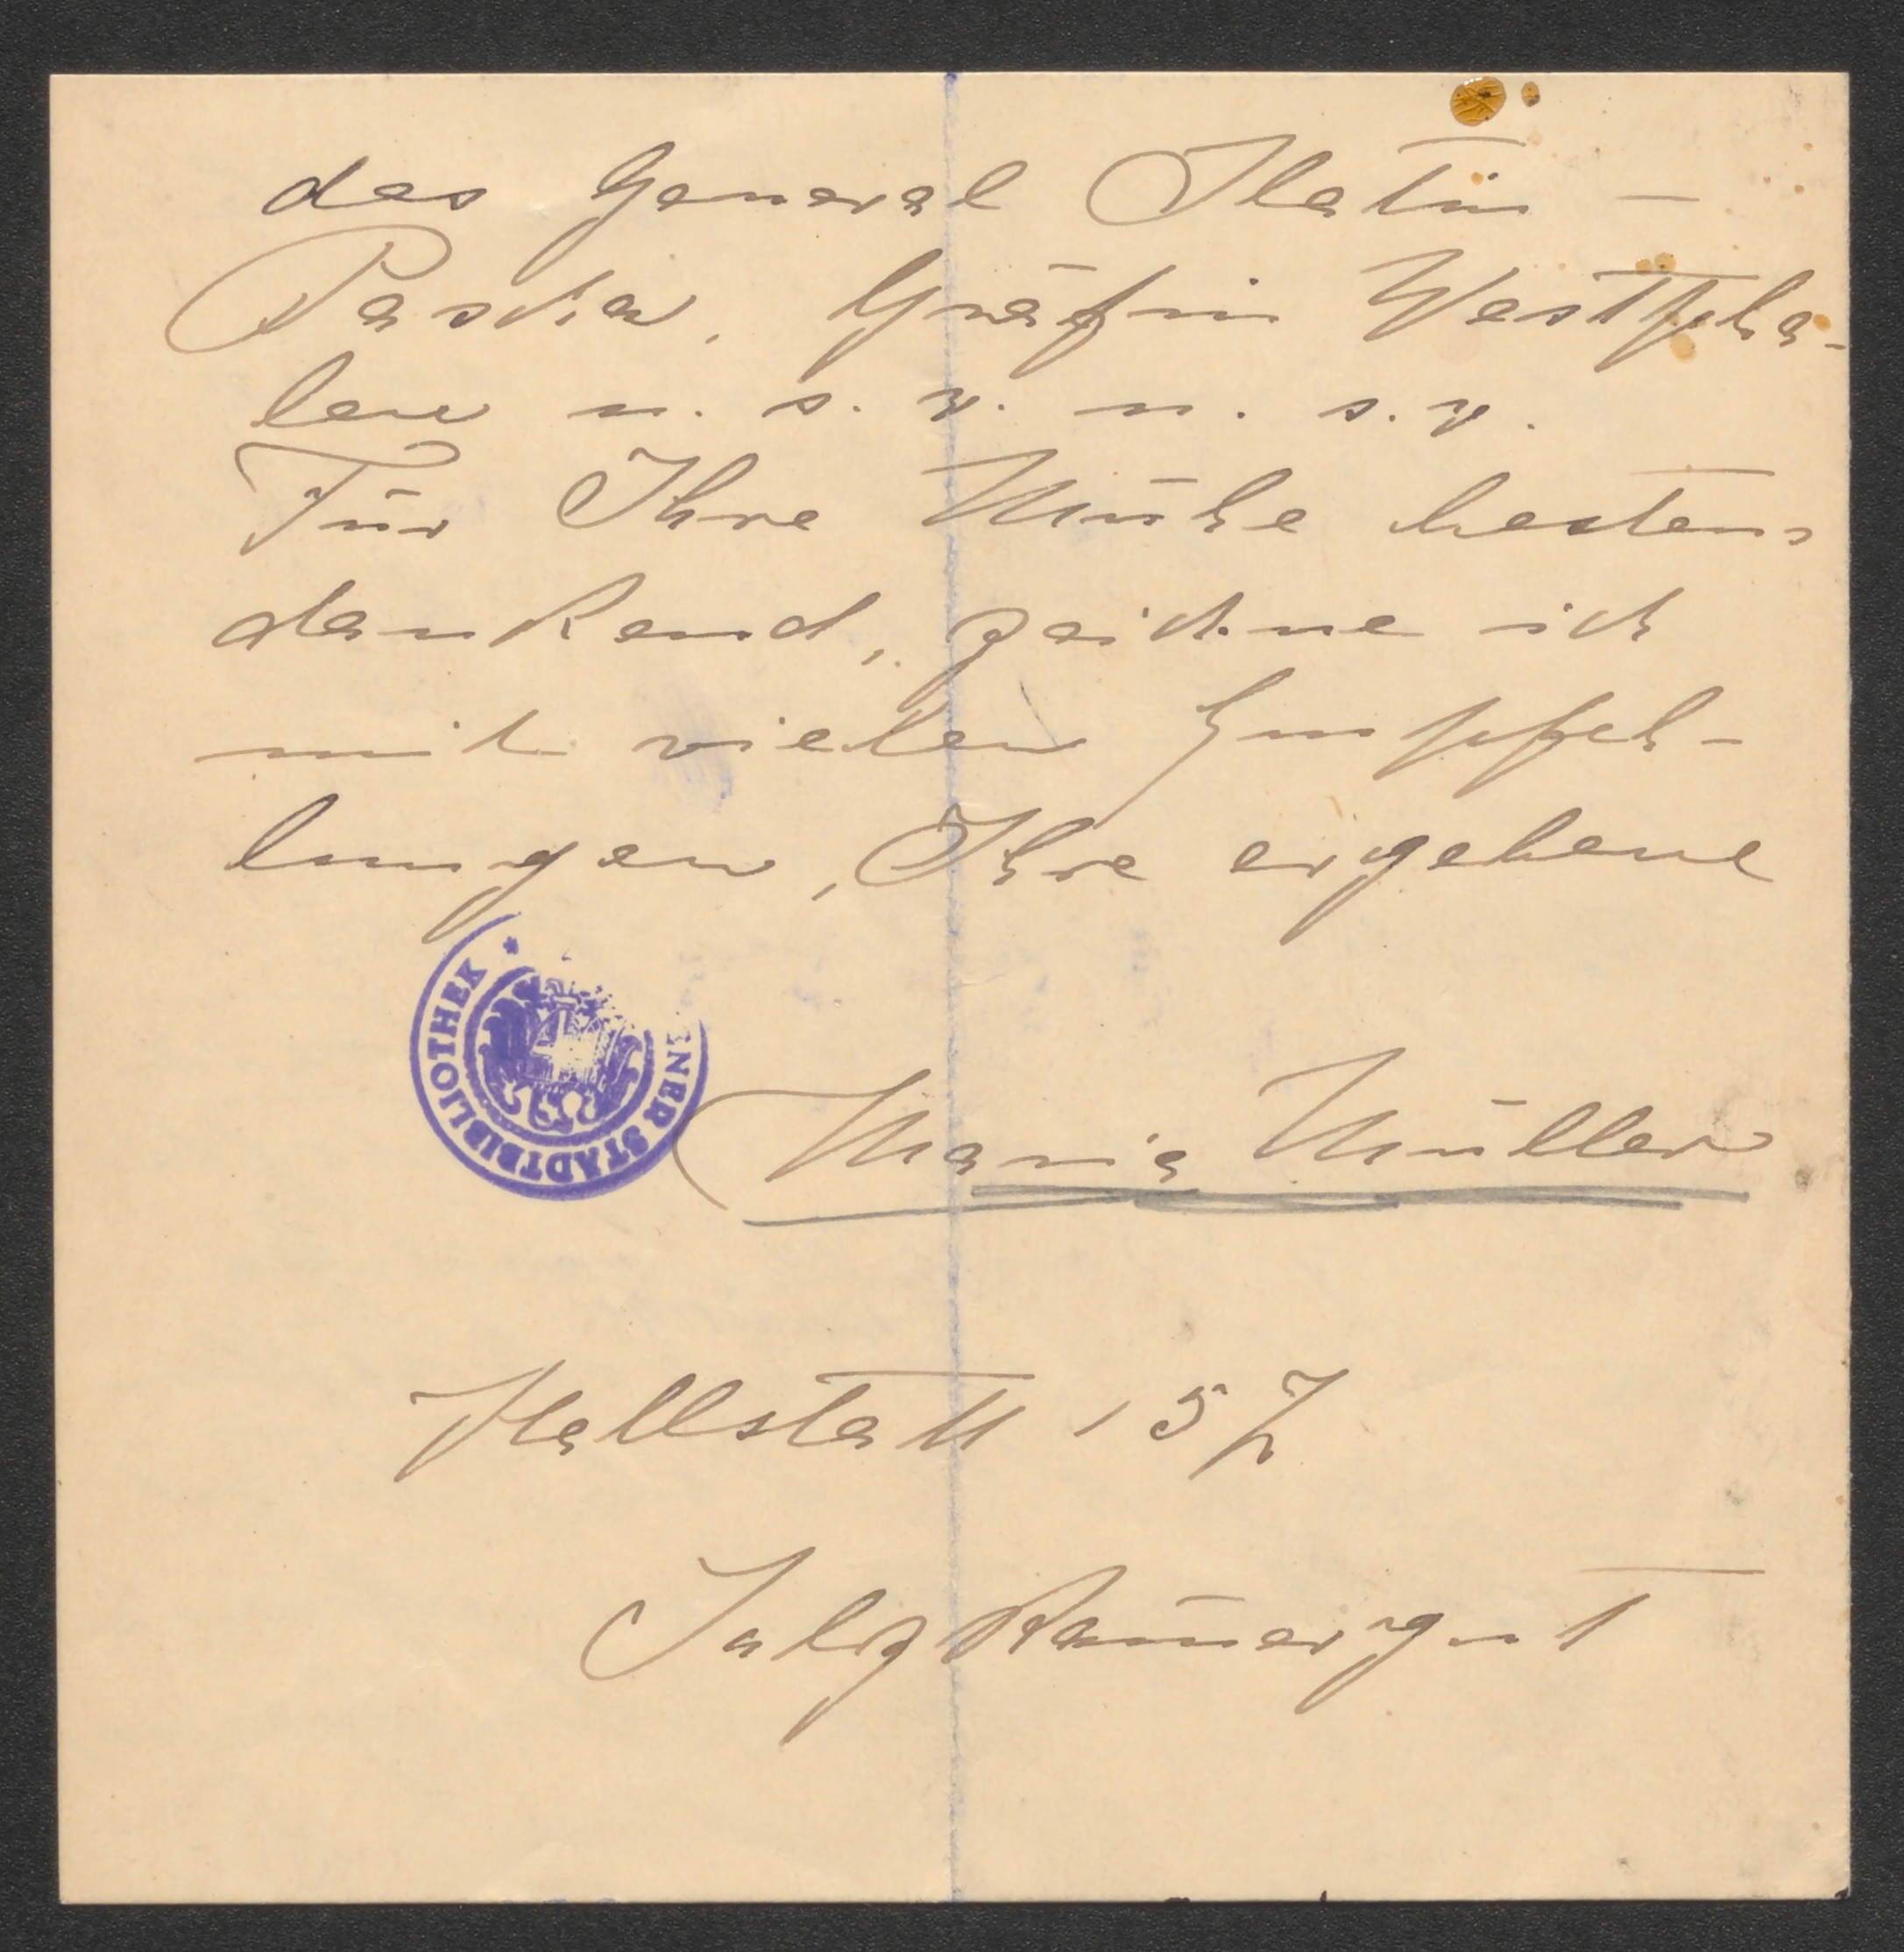 des General Slatin -
Pascha, Gräfin Westpha-
len u. s. w. u. s. w.
Für Ihre Mühe bestens
dankend, zeichne ich
mit vielen Empfeh-
lungen, Ihre ergebene
ENER STADTBIBLIOTHEK *
Maria Müller
Hallstatt 157
Salzkam̄ergut